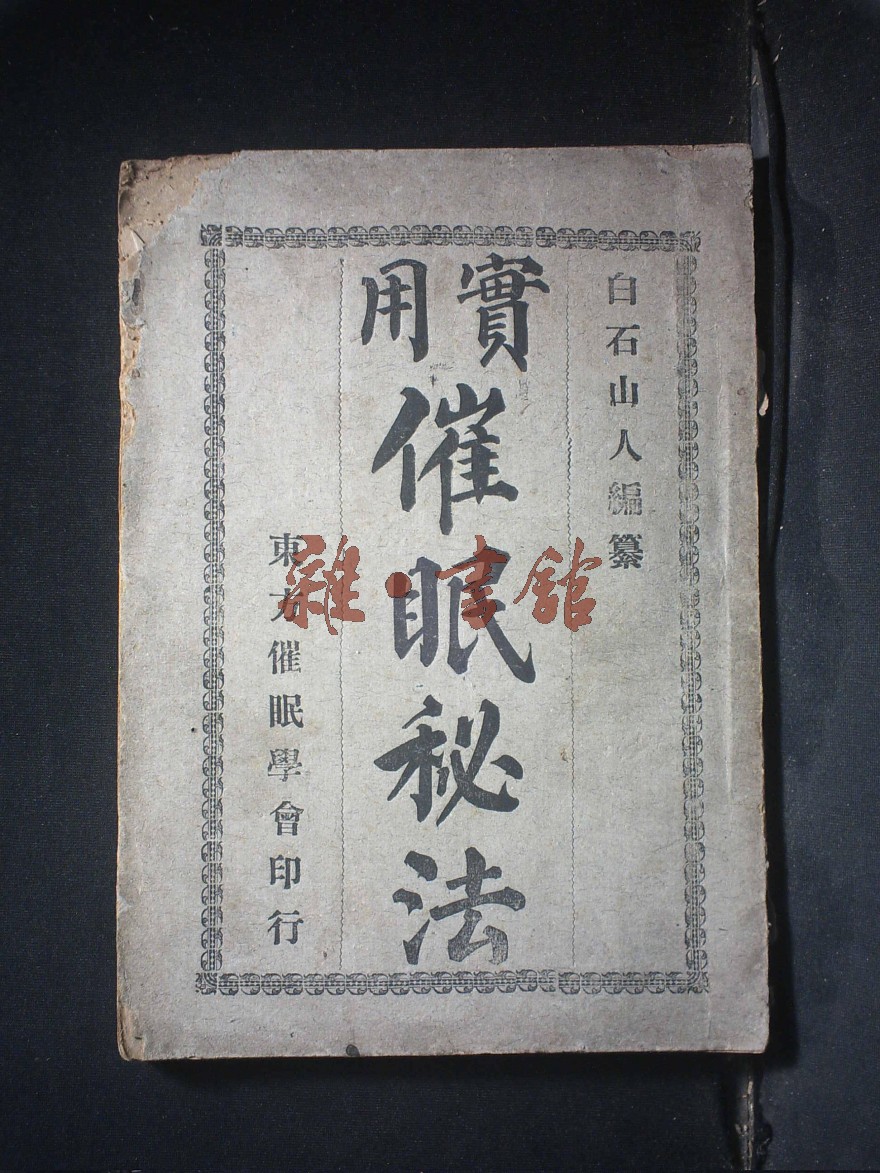 白石山人編纂
實用
催眠秘法
東方催眠學會印行
雜·書舘